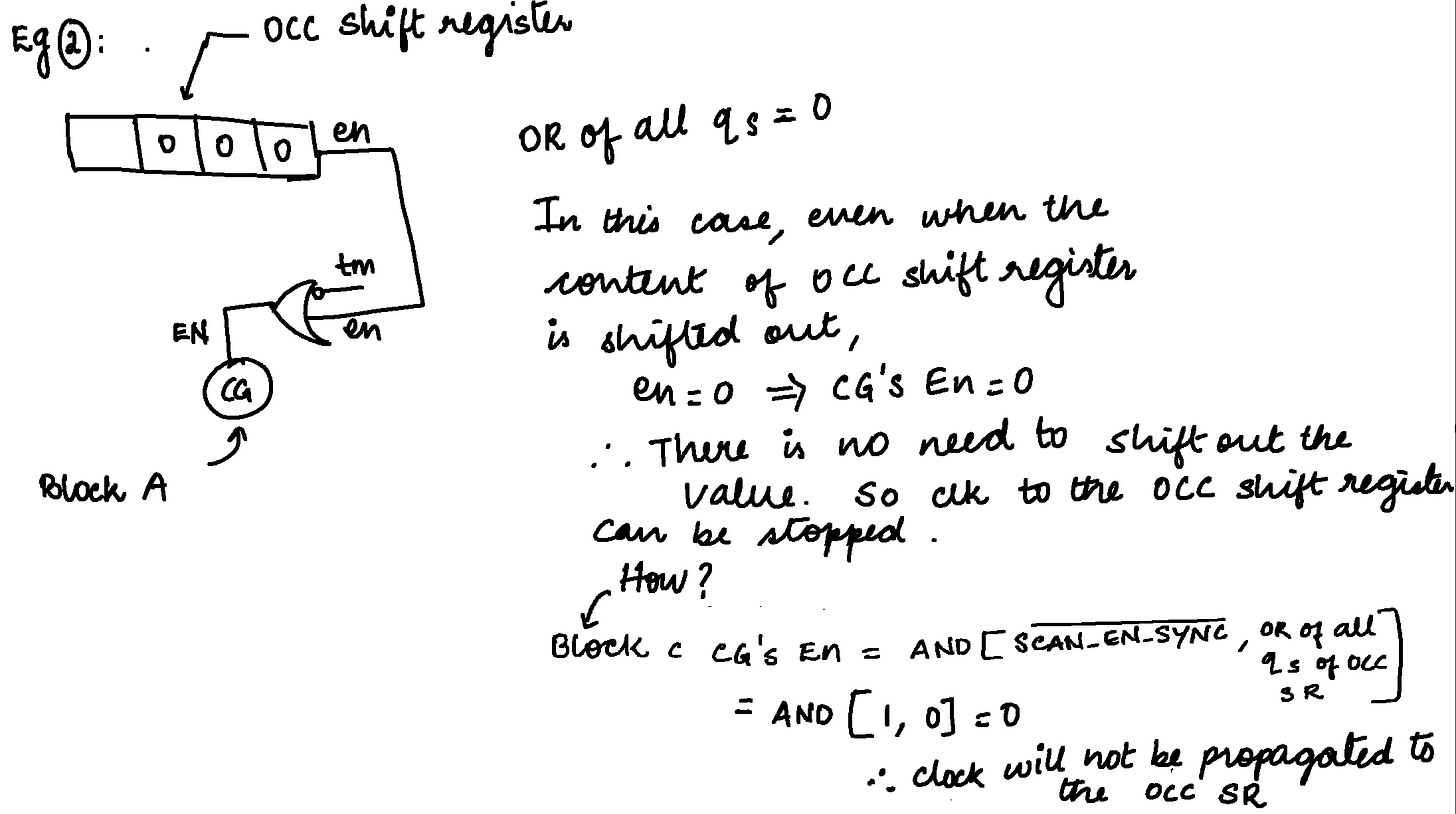 Eg ②: .
OCC shift register
0 0 0
en
tm
en
EN
CG
Block A
OR of all qs = 0
In this case, even when the
content of OCC shift register
is shifted out,
en = 0 ⇒ CG's En = 0
∴ There is no need to shift out the
value. So clk to the OCC shift register
can be stopped.
How?
Block C CG's En = AND [ S̅C̅A̅N̅_̅E̅N̅_̅S̅Y̅N̅C̅, OR of all
qs of OCC
SR ]
= AND [1, 0] = 0
∴ clock will not be propagated to
the OCC SR